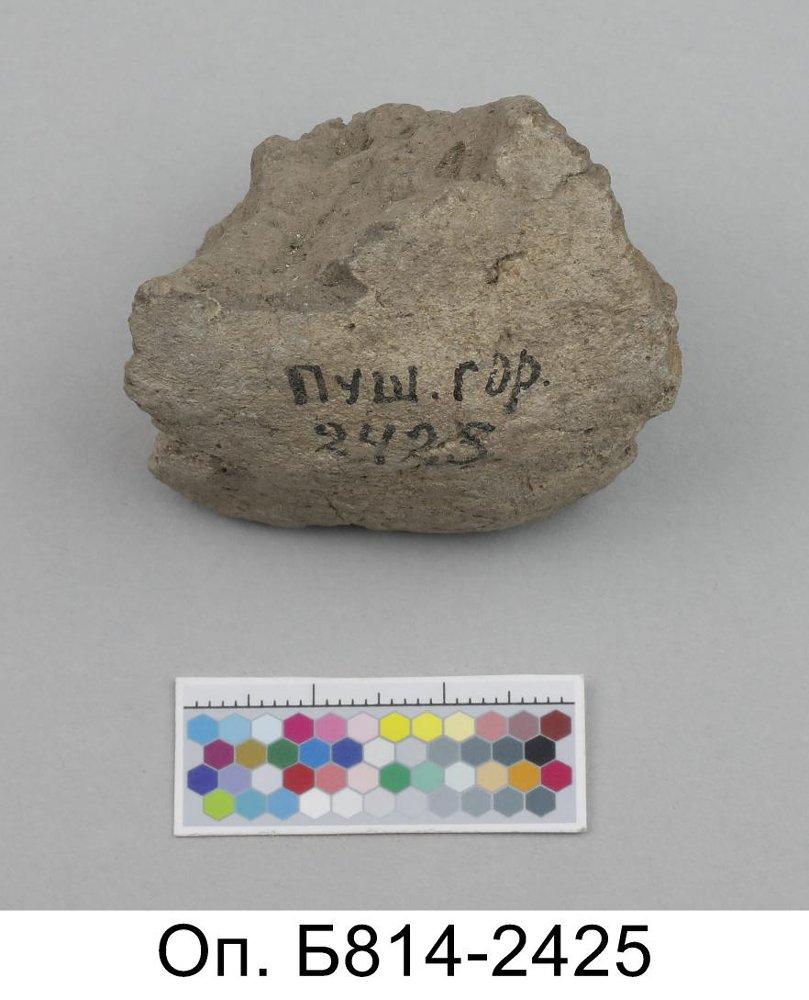 ПУШ. ГОР.
2425
Оп. Б814-2425